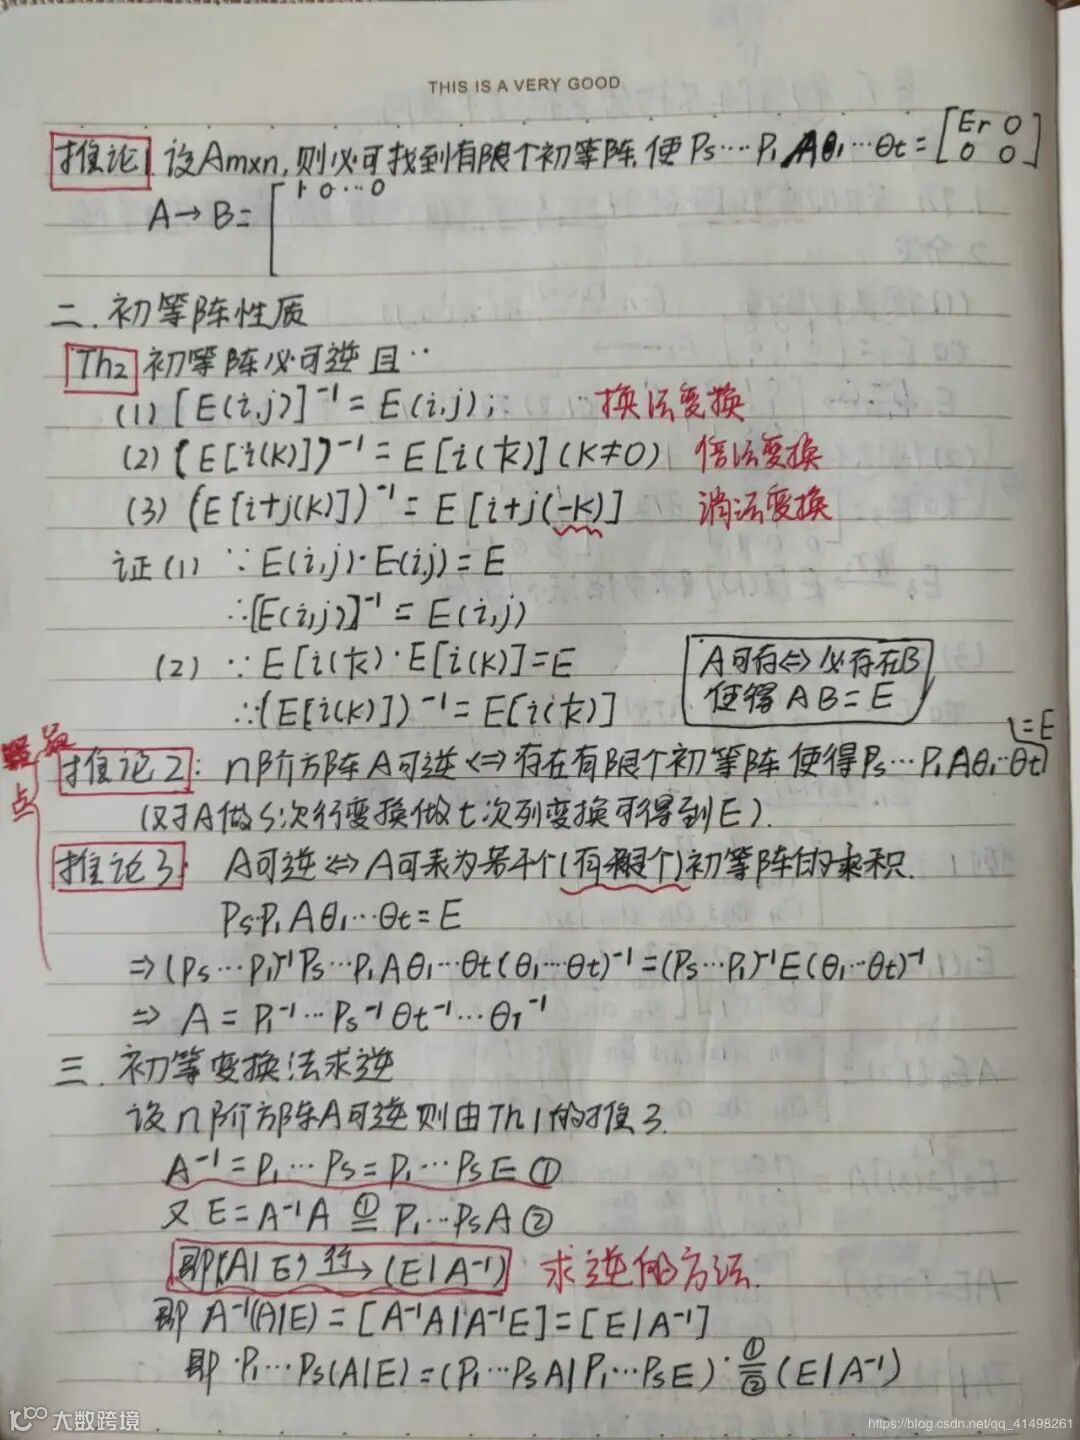 THIS IS A VERY GOOD
推论1 设Am×n,则必可找到有限个初等阵,使Ps…P1Aθ1…θt=[Er 0
0 0]
A→B=[1 0…0
二.初等阵性质
Th2 初等阵必可逆且··
(1)[E(i,j)]⁻¹=E(i,j); 换法变换
(2)(E[i(k)])⁻¹=E[i(1/k)](k≠0) 倍法变换
(3)(E[i+j(k)])⁻¹=E[i+j(-k)] 消法变换
证(1) ∵E(i,j)·E(i,j)=E
∴[E(i,j)]⁻¹=E(i,j)
(2) ∵E[i(1/k)·E[i(k)]=E
∴(E[i(k)])⁻¹=E[i(1/k)]
A可存⇔必存在B
使得AB=E
点
推论2: n阶方阵A可逆⇔存在有限个初等阵使得Ps…P1Aθ1…θt=E
(对A做s次行变换做t次列变换可得到E).
推论3 A可逆⇔A可表为若干个(有限个)初等阵的乘积.
Ps·P1Aθ1…θt=E
⇒(Ps…P1)⁻¹Ps…P1Aθ1…θt(θ1…θt)⁻¹=(Ps…P1)⁻¹E(θ1…θt)⁻¹
⇒ A=P1⁻¹…Ps⁻¹θt⁻¹…θ1⁻¹
三.初等变换法求逆
设n阶方阵A可逆则由Th1的推3.
A⁻¹=P1…Ps=P1…PsE ①
又E=A⁻¹A ①= P1…PsA ②
即(A|E) 行→ (E|A⁻¹) 求逆的方法.
即 A⁻¹(A|E)=[A⁻¹A|A⁻¹E]=[E|A⁻¹]
即·P1…Ps(A|E)=(P1…PsA|P1…PsE) ①=② (E|A⁻¹)
大数跨境
https://blog.csdn.net/qq_41498261